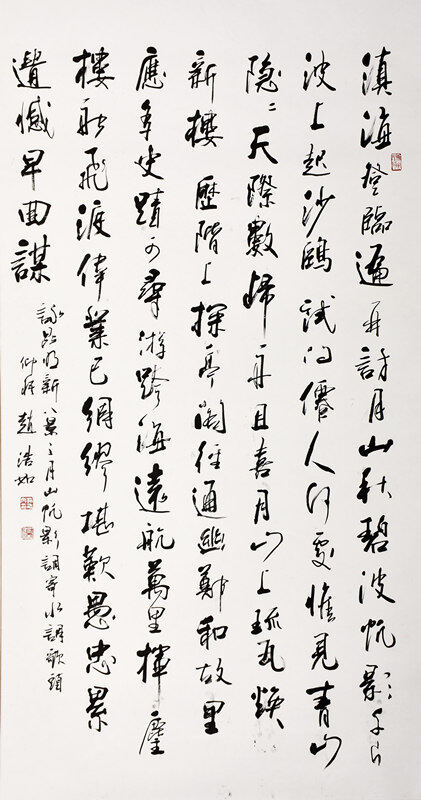 滇海登臨遍再訪月山秋碧波帆影千尺
波上起沙鷗試問僊人何處惟見青山
隱〻天際數歸舟且喜月山上琉瓦煥
新樓歷階上探亭閣徑通幽鄭和故里
應史蹟可尋游跨海遠航萬里揮麾
樓船飛渡偉業已綢繆堪歎愚忠累
遺憾早曲謀
詠昆明新八景之月山帆影調寄水調歌頭
仰趙浩如